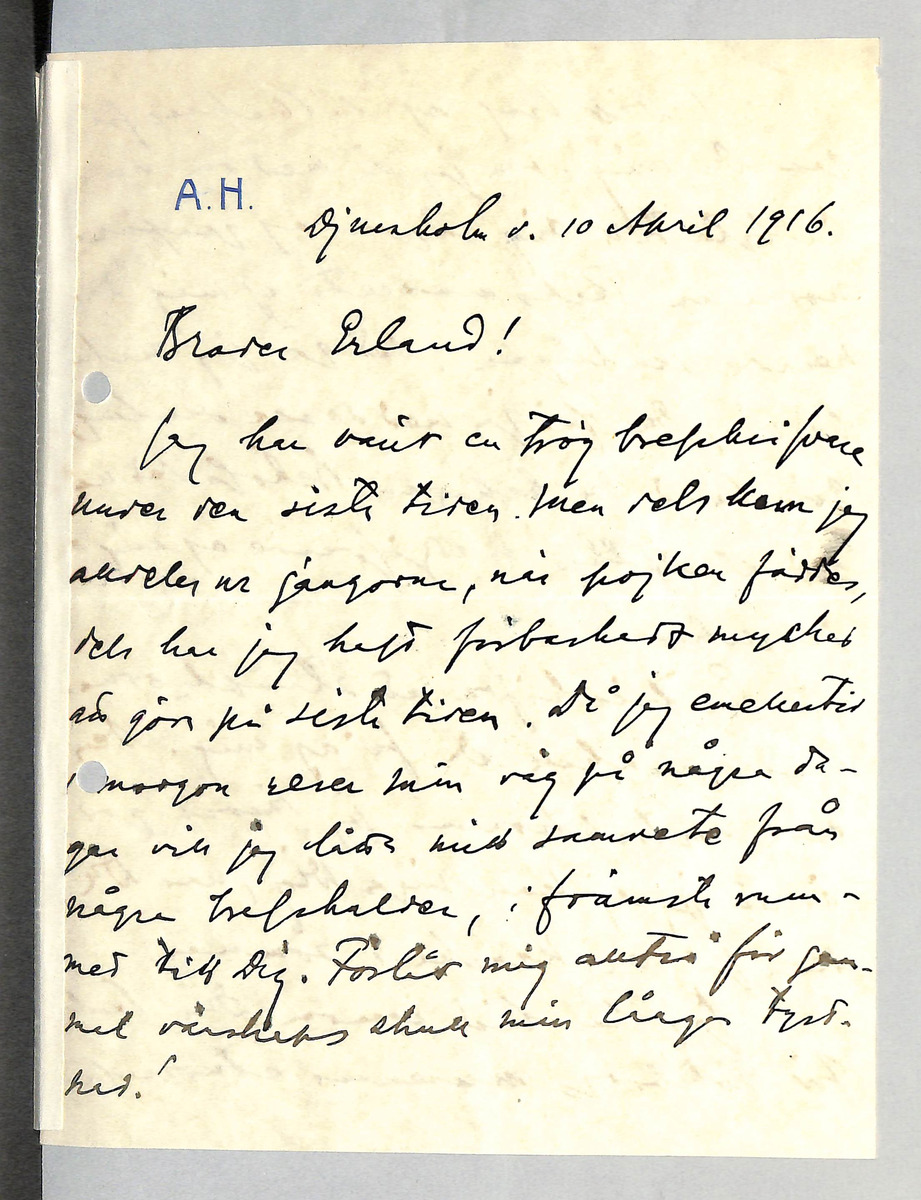 A.H.
Djursholm d. 10 April 1916.
Broder Erland!
Jag har varit en trög brefskrifvare
under den sista tiden. Men dels kom jag
alldeles ur gängorna, när pojken föddes,
dels har jag haft förbaskadt mycket
att göra på sista tiden. Då jag emellertid
i morgon reser min väg på några da-
gar vill jag lätta mitt samvete från
några brefskulder, i främsta rum-
met till Dig. Förlåt mig alltså för gam-
mal vänskaps skull min långa tyst-
nad!